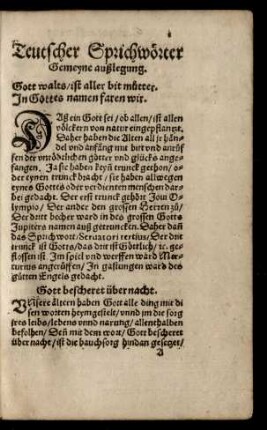 Teutscher Sprichwörter
Gemeyne außlegung.
Gott walts/ist aller bit mütter.
In Gottes namen faren wir.
DAß ein Gott sei/ob allen/ist allen
völckern von natur eingepflantzt.
Daher haben die Alten all jr hän-
del vnd anfäng mit bitt vnd anrüf
fen der vntödtlichen götter vnd glücks ange-
fangen. Ja sie haben keyn trunck gethon/o-
der eynen trunck bracht/sie haben allwegen
eyns Gottes oder verdienten menschen dar-
bei gedacht. Der erst trunck gehört Joui O-
lympio/Der ander den grossen Herren zů/
Der dritt becher ward in des grossen Gotts
Jupiters namen auß getruncken. Daher dañ
das Sprichwort/Seruatori tertius/Der dritt
trunck ist Gotts/das dritt ist Göttlich/ꝛc. ge-
flossen ist. Im spiel vnd werffen ward Mer-
curius angerüffen/In gastungen ward des
gůtten Engels gedacht.
Gott bescheret über nacht.
VNsere ältern haben Gott alle ding mit di
sen worten heymgestelt/vnnd im die sorg
jres leibs/lebens vnnd narung/allenthalben
befolhen/Deñ mit dem wort/Gott bescheret
über nacht/ist die bauchsorg hindan gesetzet/
A